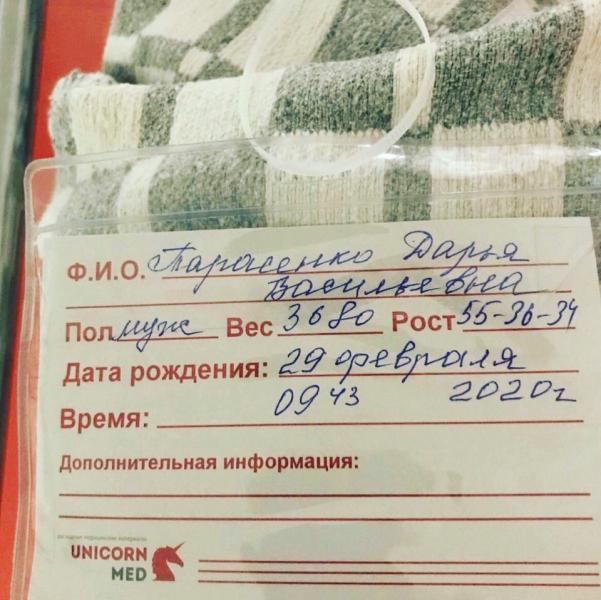 Ф.И.О. Тарасенко Дарья
Васильевна
Пол муж Вес 3680 Рост 55-36-34
Дата рождения: 29 февраля
0943 2020г
Время:
Дополнительная информация:
UNICORN
MED